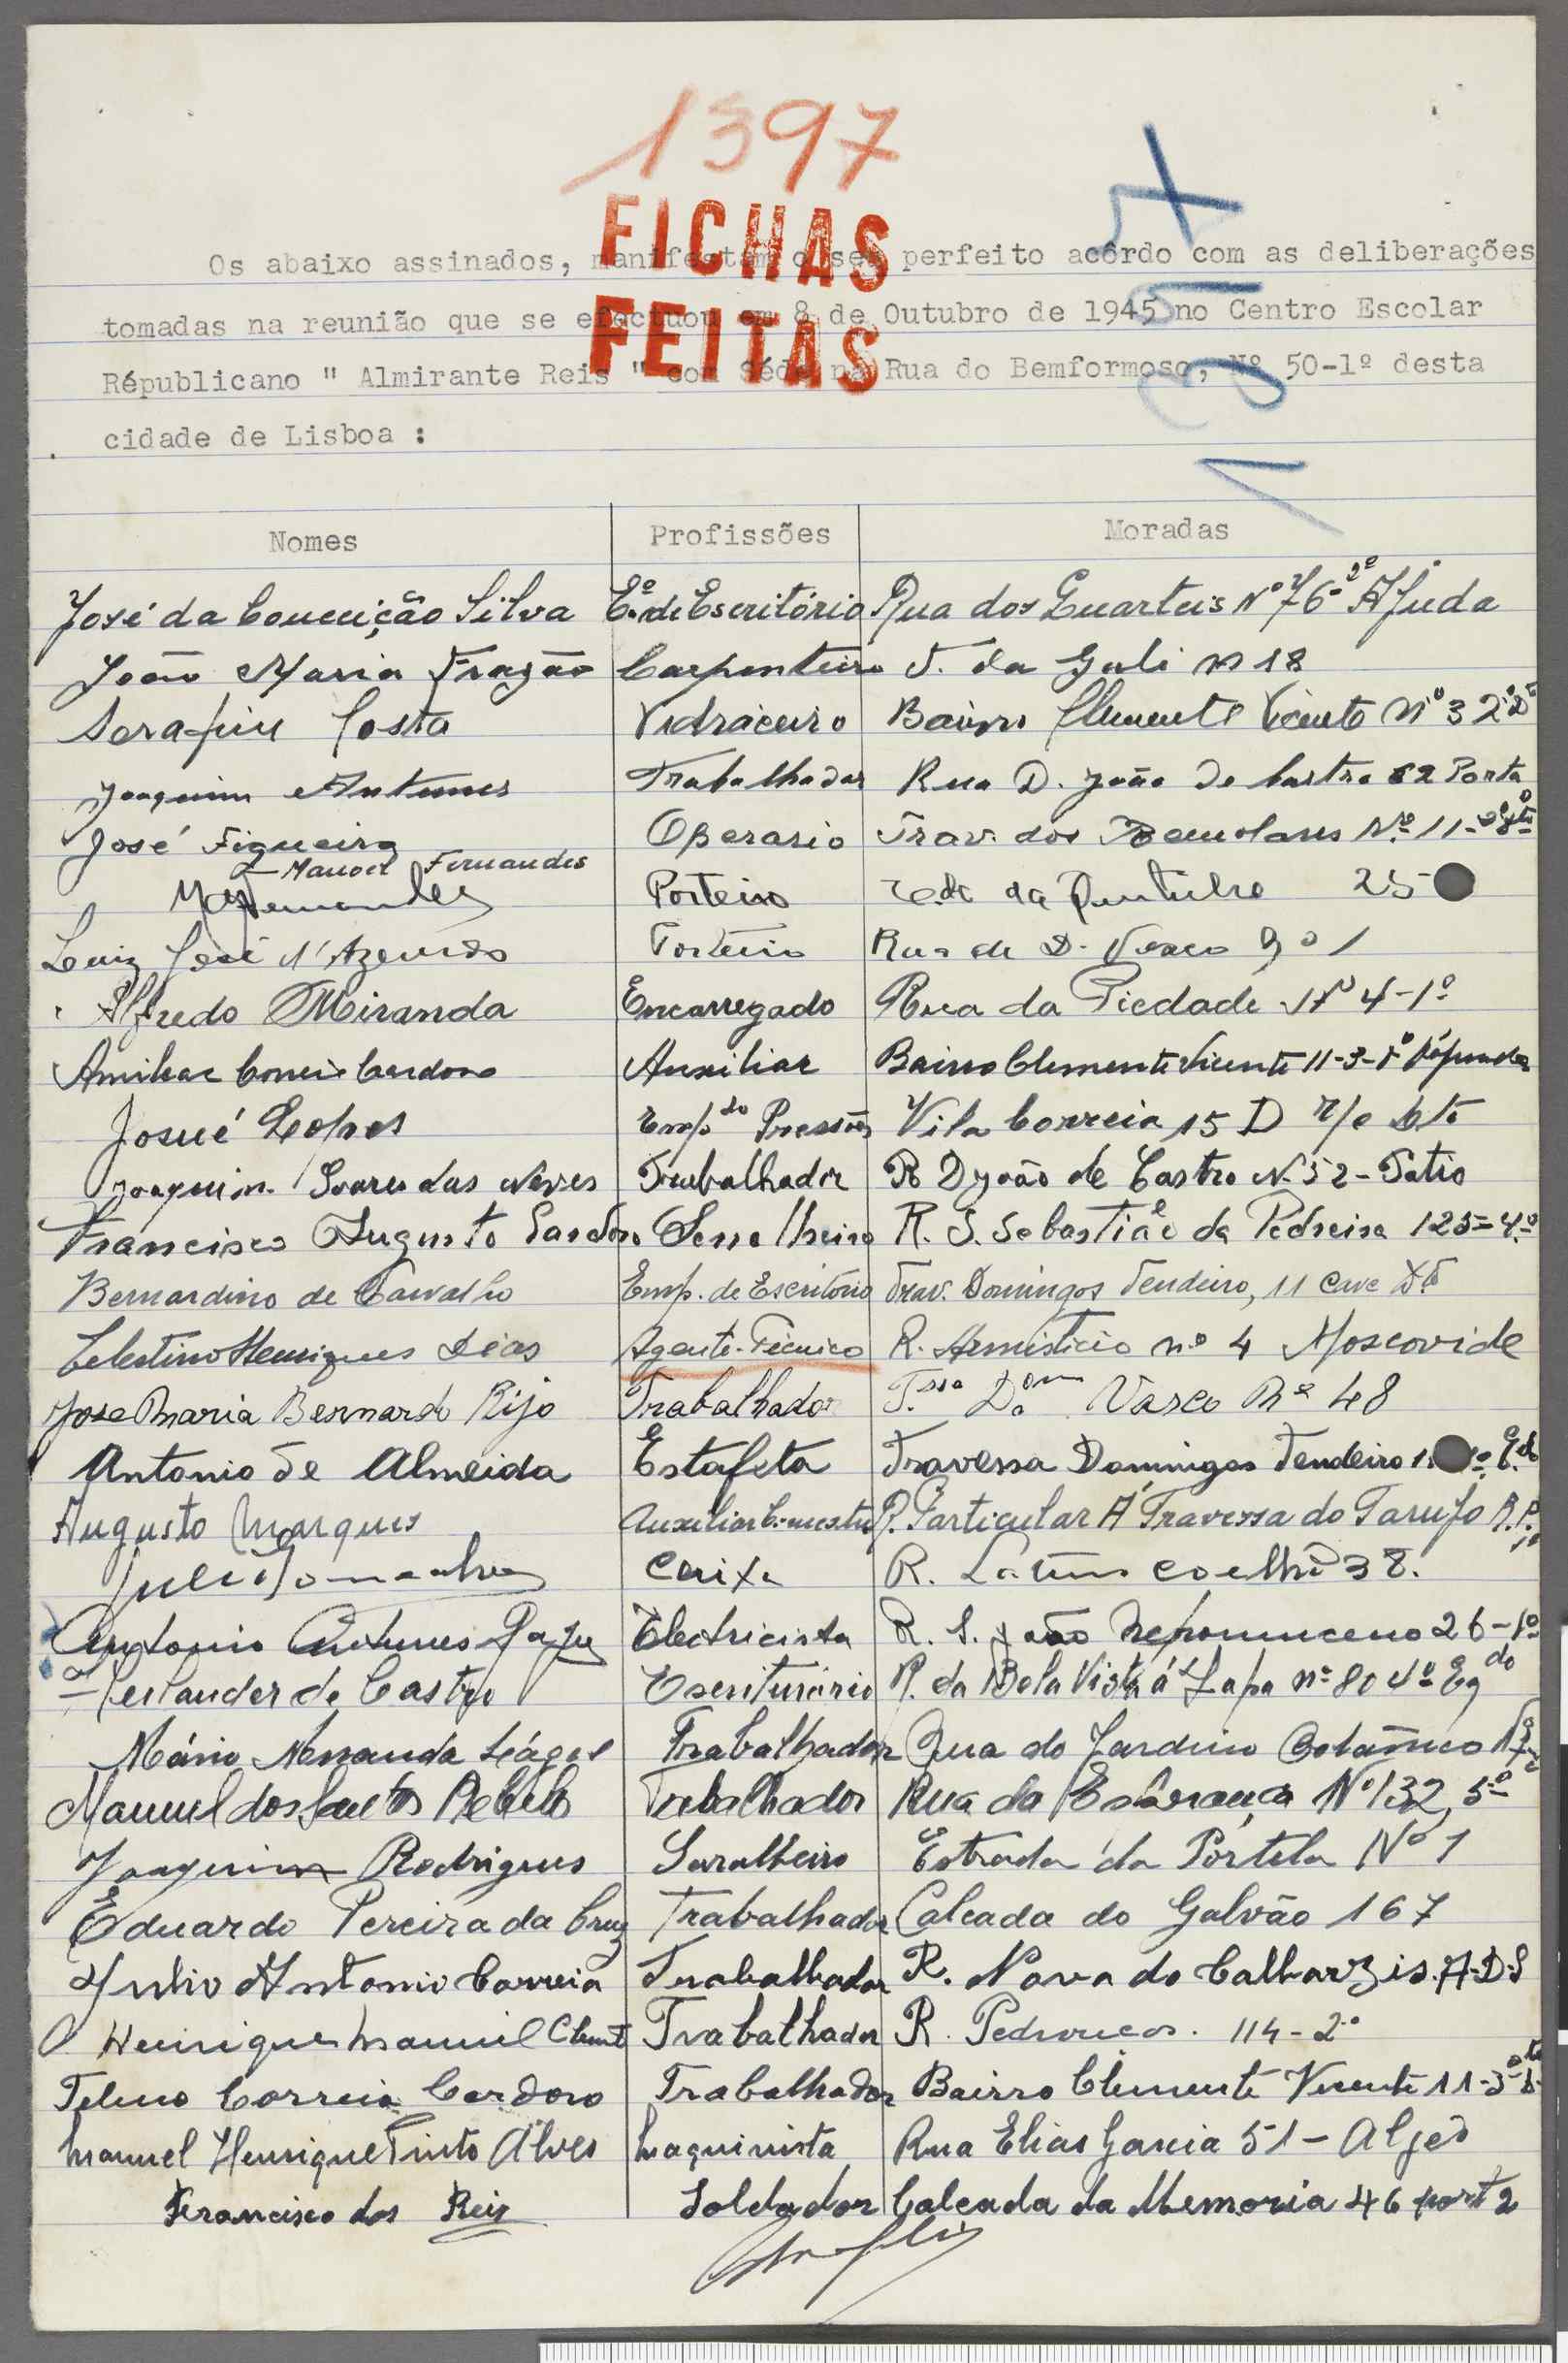 1397
FICHAS
FEITAS
Os abaixo assinados, manifestam o seu perfeito acôrdo com as deliberações
tomadas na reunião que se efectuou em 8 de Outubro de 1945 no Centro Escolar
Républicano " Almirante Reis " com Séde na Rua do Bemformoso, Nº 50-1º desta
cidade de Lisboa :
Nomes Profissões Moradas
José da Conceição Silva E.º de Escritório Rua dos Quarteis Nº 76-2º Ajuda
João Maria Fragão Carpenteiro T. da Galé nº 18
Serafim Costa Vidraceiro Bairro Clemente Vicente Nº 3 2º Dto
Joaquim Antunes Trabalhador Rua D. João de Castro 52 Porta
José Figueira Operario Trav. dos Remolares Nº 11
Manoel Fernandes
MFernandes Porteiro 25
Luiz José d'Azevedo Porteiro Rua de D. Vasco
Alfredo Miranda Encarregado Rua da Piedade Nº 4-1º
Amilcar Correia Cardoso Auxiliar Bairro Clemente Vicente 11-3-Dº Dáfundo
Josué Lopes Emp.do Vila Correia 15 D r/c Dto
Joaquim Soares das Neves Trabalhador R D João de Castro N. 52-Patio
Francisco Augusto Cardoso Serralheiro R. S. Sebastião da Pedreira 123=4.º
Bernardino de Carvalho Emp. de Escritório Trav. Domingos Tendeiro, 11 Cave Dtº
Celestino Henriques Dias Agente-Técnico R. Armisticio nº 4 Moscovide
Jose Maria Bernardo Rijo Trabalhador T.ssa Dom Vasco Nº 48
Antonio de Almeida Estafeta Travessa Domingos Tendeiro
Augusto Marques Auxiliar R. Particular Á Travessa do Tarujo
Caixa R. Latino Coelho 38.
Antonio Antunes Electricista R. S. João Nepomuceno 26-1º
Leilander de Castro Escriturário R. da Bela Vista á Lapa nº 80 4º Eqdo
Mário Trabalhador Rua do Jardim Botânico
Manuel dos Santos Rebelo Trabalhador Rua da Esperança Nº 132, 5º
Joaquim Rodrigues Saralheiro Estrada da Pórtela Nº 1
Eduardo Pereira da Cruz Trabalhador Calcada do Galvão 167
Julio Antonio Correia Trabalhador R. Nova do Calhariz
Henrique Manuel Trabalhador R. Pedroucos. 114-2º
Telmo Correia Cardoso Trabalhador Bairro Clemente Vicente 11-3º
Manuel Henrique Pinto Alves Maquinista Rua Elias Garcia 51-Algés
Francisco dos Reis Soldador Calcada da Memoria 46 port 2